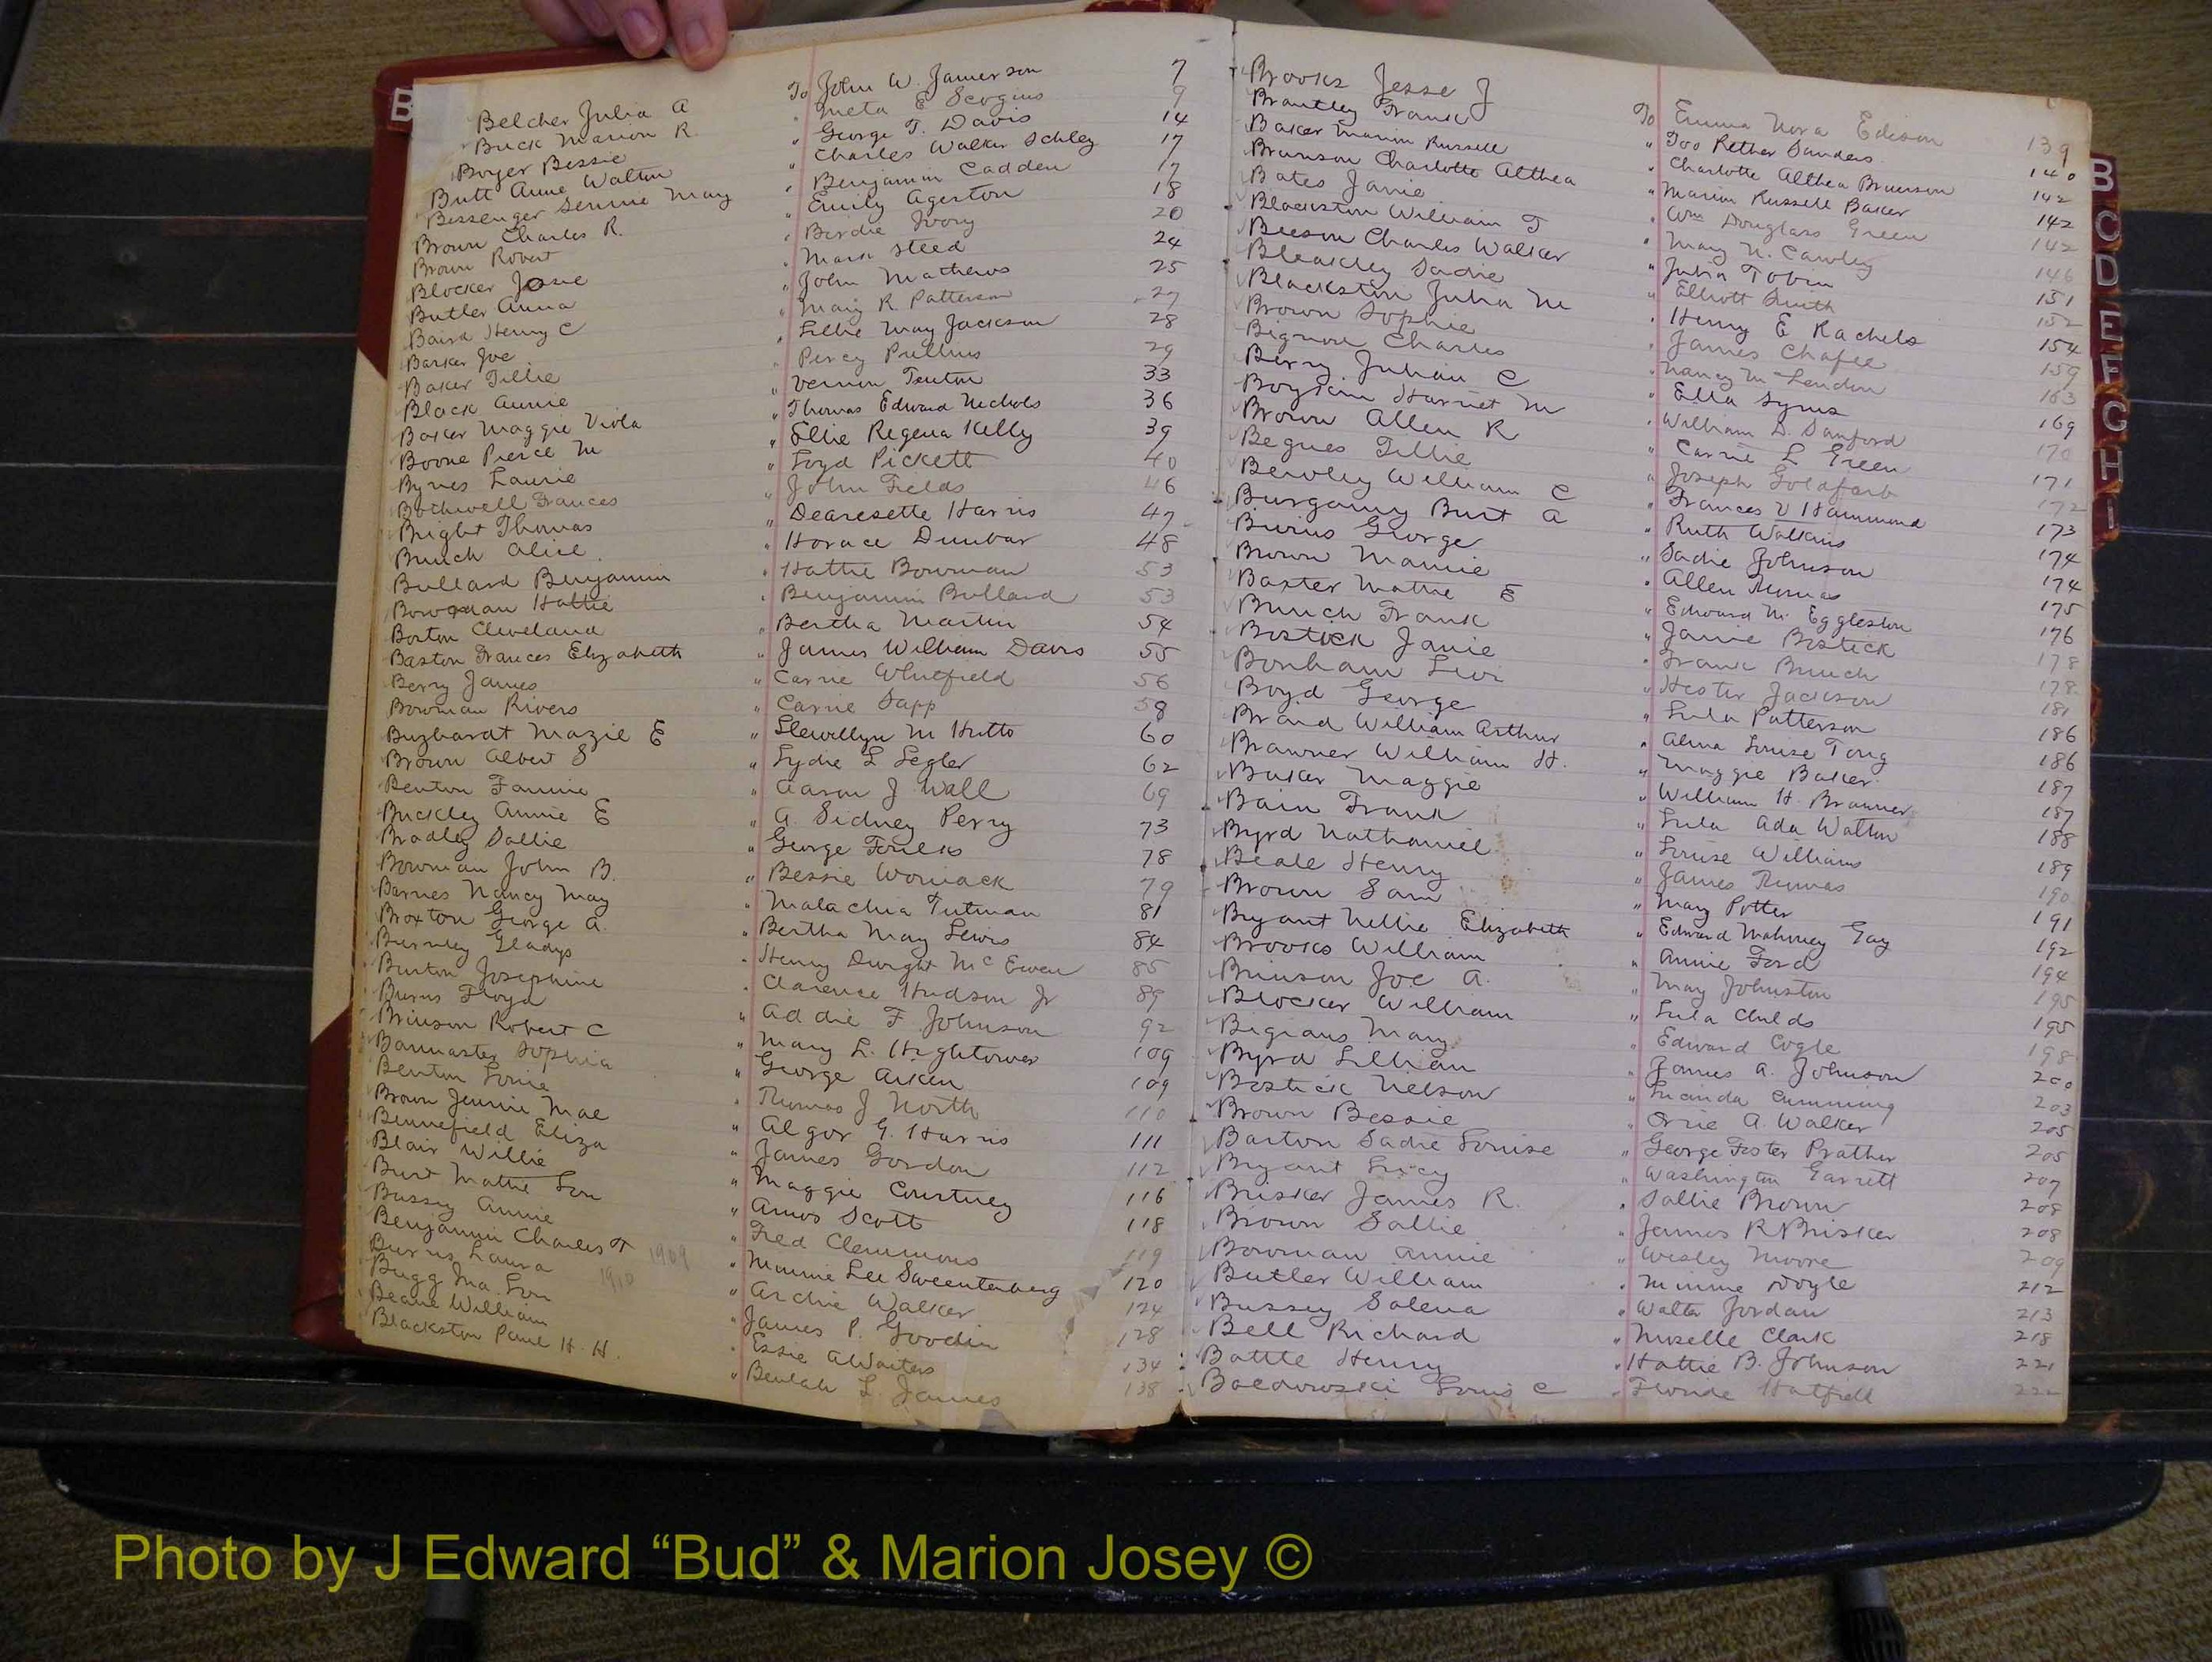 B
Belcher Julia A To John W. Jamerson 7
Buck Marion R. " Meta E Scogins 9
Boyer Bessie " George T. Davis 14
Butt Anne Walton " Charles Walker Schley 17
Bessenger Jennie Mary " Benjamin Cadden 17
Brown Charles R. " Emily Agerton 18
Brown Robert " Birdie Ivory 20
Blocker Josie " Mark Steed 24
Butler Anna " John Mathews 25
Baird Henry C " Mary R. Patterson 27
Barker Joe " Lillie May Jackson 28
Baker Tillie " Percy Pullins 29
Black Annie " Vernon Teuton 33
Baker Maggie Viola " Thomas Edward Nichols 36
Boone Pierce M " Ellie Regena Kelly 39
Bynes Laurie " Loyd Pickett 40
Bothwell Frances " John Fields 46
Bright Thomas " Dearesette Harris 47
Bunch Alice " Horace Dunbar 48
Bullard Benjamin " Hattie Bowman 53
Bowman Hattie " Benjamin Bullard 53
Borton Cleveland " Bertha Martin 54
Baston Frances Elizabeth " James William Davis 55
Berry James " Carrie Whitfield 56
Bowman Rivers " Carrie Sapp 58
Buzhardt Mazie E " Llewellyn M Hutto 60
Brown Albert S " Lydie L Legler 62
Benton Fannie " Aaron J Wall 69
Buckley Annie E " A. Sidney Perry 73
Bradley Sallie " George Foulks 78
Bowman John B. " Bessie Womack 79
Barnes Nancy May " Malachia Tutman 81
Broxton George A. " Bertha May Lewis 84
Burnley Gladys " Henry Dwight McEwen 85
Burton Josephine " Clarence Hudson Jr 89
Burns Floyd " Addie F Johnson 92
Brinson Robert C " Mary L. Hightower 109
Banmaster Sophia " George Aiken 109
Benton Louie " Thomas J North 110
Brown Jennie Mae " Algor G. Harris 111
Bennefield Eliza " James Gordon 112
Blair Willie " Maggie Courtney 116
Burt Mattie Lou " Amos Scott 118
Bussey Annie " Fred Clemmons 119
Benjamin Charles T 1909 " Minnie Lee Sweentenberg 120
Burns Laura 1910 " Archie Walker 124
Bugg Ina Lou " James P. Goodin 128
Beane William " Essie Awaiters 134
Blackston Paul H. H. " Beulah L. James 138
Brooks Jesse J To Emma Nora Edison 139
Brantley Frank " Too Rether Sanders 140
Baker Marion Russell " Charlotte Althea Brunson 142
Brunson Charlotte Althea " Marion Russell Baker 142
Bates Janie " Wm Douglass Green 142
Blackston William T " Mary N. Cawley 146
Beeson Charles Walker " Julia Tobin 151
Bleakley Sadie " Elliott Smith 152
Blackston Julia M " Henry E Rachels 154
Brown Sophie " James Chafee 159
Bignon Charles " Nancy M Lendon 163
Berry Julian C " Ella Syms 169
Boykin Harriet M " William D. Sanford 170
Brown Allen R " Carrie L Green 171
Begnes Tillie " Joseph Goldfarb 172
Bewley William C " Frances V Hammond 173
Burgamy Burt A " Ruth Watkins 174
Bivins George " Sadie Johnson 174
Brown Mamie " Allen Thomas 175
Baxter Mattie E " Edward M. Eggleston 176
Bunch Frank " Janie Bostick 178
Bostick Janie " Frank Bunch 178
Bonham Levi " Hester Jackson 181
Boyd George " Lula Patterson 186
Brand William Arthur " Alma Louise Tong 186
Brawner William H. " Maggie Baker 187
Baker Maggie " William H. Brawner 187
Bain Frank " Lula Ada Walton 188
Byrd Nathaniel " Louise Williams 189
Beale Henry " James Thomas 190
Brown Sam " Mary Potter 191
Bryant Nellie Elizabeth " Edward Mahoney Gay 192
Brooks William " Annie Ford 194
Brinson Joe A. " May Johnston 195
Blocker William " Lula Childs 195
Bigians Mary " Edward Cogle 198
Byrd Lillian " James A. Johnson 200
Bostick Nelson " Lucinda Cumming 203
Brown Bessie " Orrie A. Walker 205
Barton Sadie Louise " George Foster Prather 205
Bryant Lucy " Washington Garrett 207
Brisker James R. " Sallie Brown 208
Brown Sallie " James R Brisker 208
Bowman Annie " Wesley Moore 209
Butler William " Minnie Doyle 212
Bussey Salena " Walter Jordan 213
Bell Richard " Mozelle Clark 218
Battle Henry " Hattie B. Johnson 221
Bacowozki Louis C " Floride Hatfield 222
B
C
D
E
F
G
H
I
Photo by J Edward “Bud” & Marion Josey ©